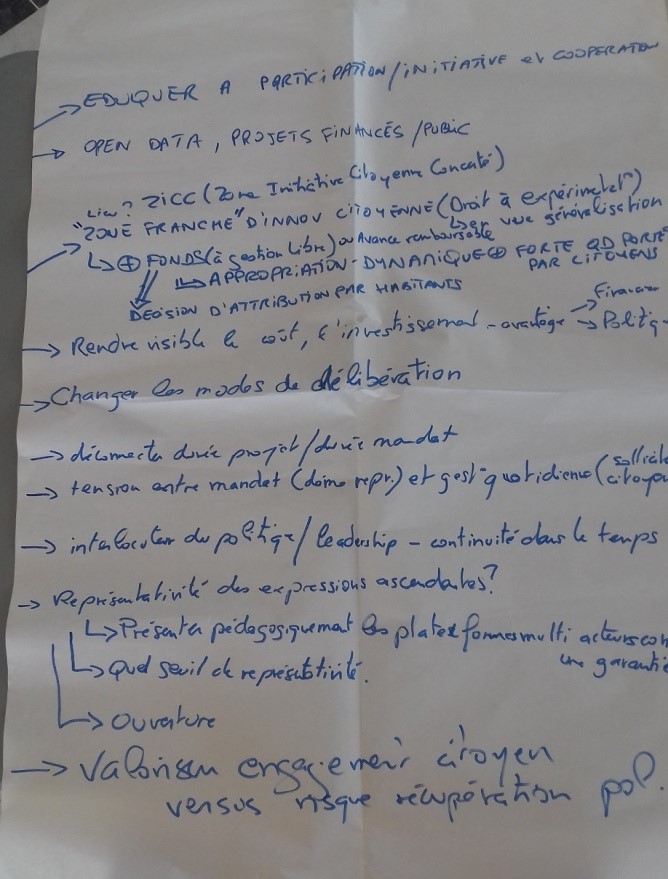 → EDUQUER A PARTICIPATION/INITIATIVE et COOPERATION
→ OPEN DATA, PROJETS FINANCÉS/PUBLIC
Lieu ? ZICC (Zone Initiative Citoyenne Concerté)
→ "ZONE FRANCHE" D'INNOV CITOYENNE (Droit à expérimenter)
↳ en vue généralisation
↳ ⊕ FONDS (à gestion libre) ou Avance remboursable
↳ APPROPRIATION - DYNAMIQUE ⊕ FORTE QD PORTÉ
PAR CITOYENS
DÉCISION D'ATTRIBUTION PAR HABITANTS
→ Rendre visible le coût, l'investissement - avantage → Financier
→ Politiq
→ Changer les modes de délibération
→ déconnecter durée projet/durée mandat
→ tension entre mandat (démo repr.) et gest° quotidienne (
citoye
→ interlocuteur du politiqe/leadership - continuité dans le temps
→ Représentativité des expressions ascendantes ?
↳ Présenter pédagogiquement les plates formes multi acteurs com
une garantie
↳ Quel seuil de représentivité.
↳ Ouverture
→ Valoriser engagement citoyen
versus risque récupération pol.